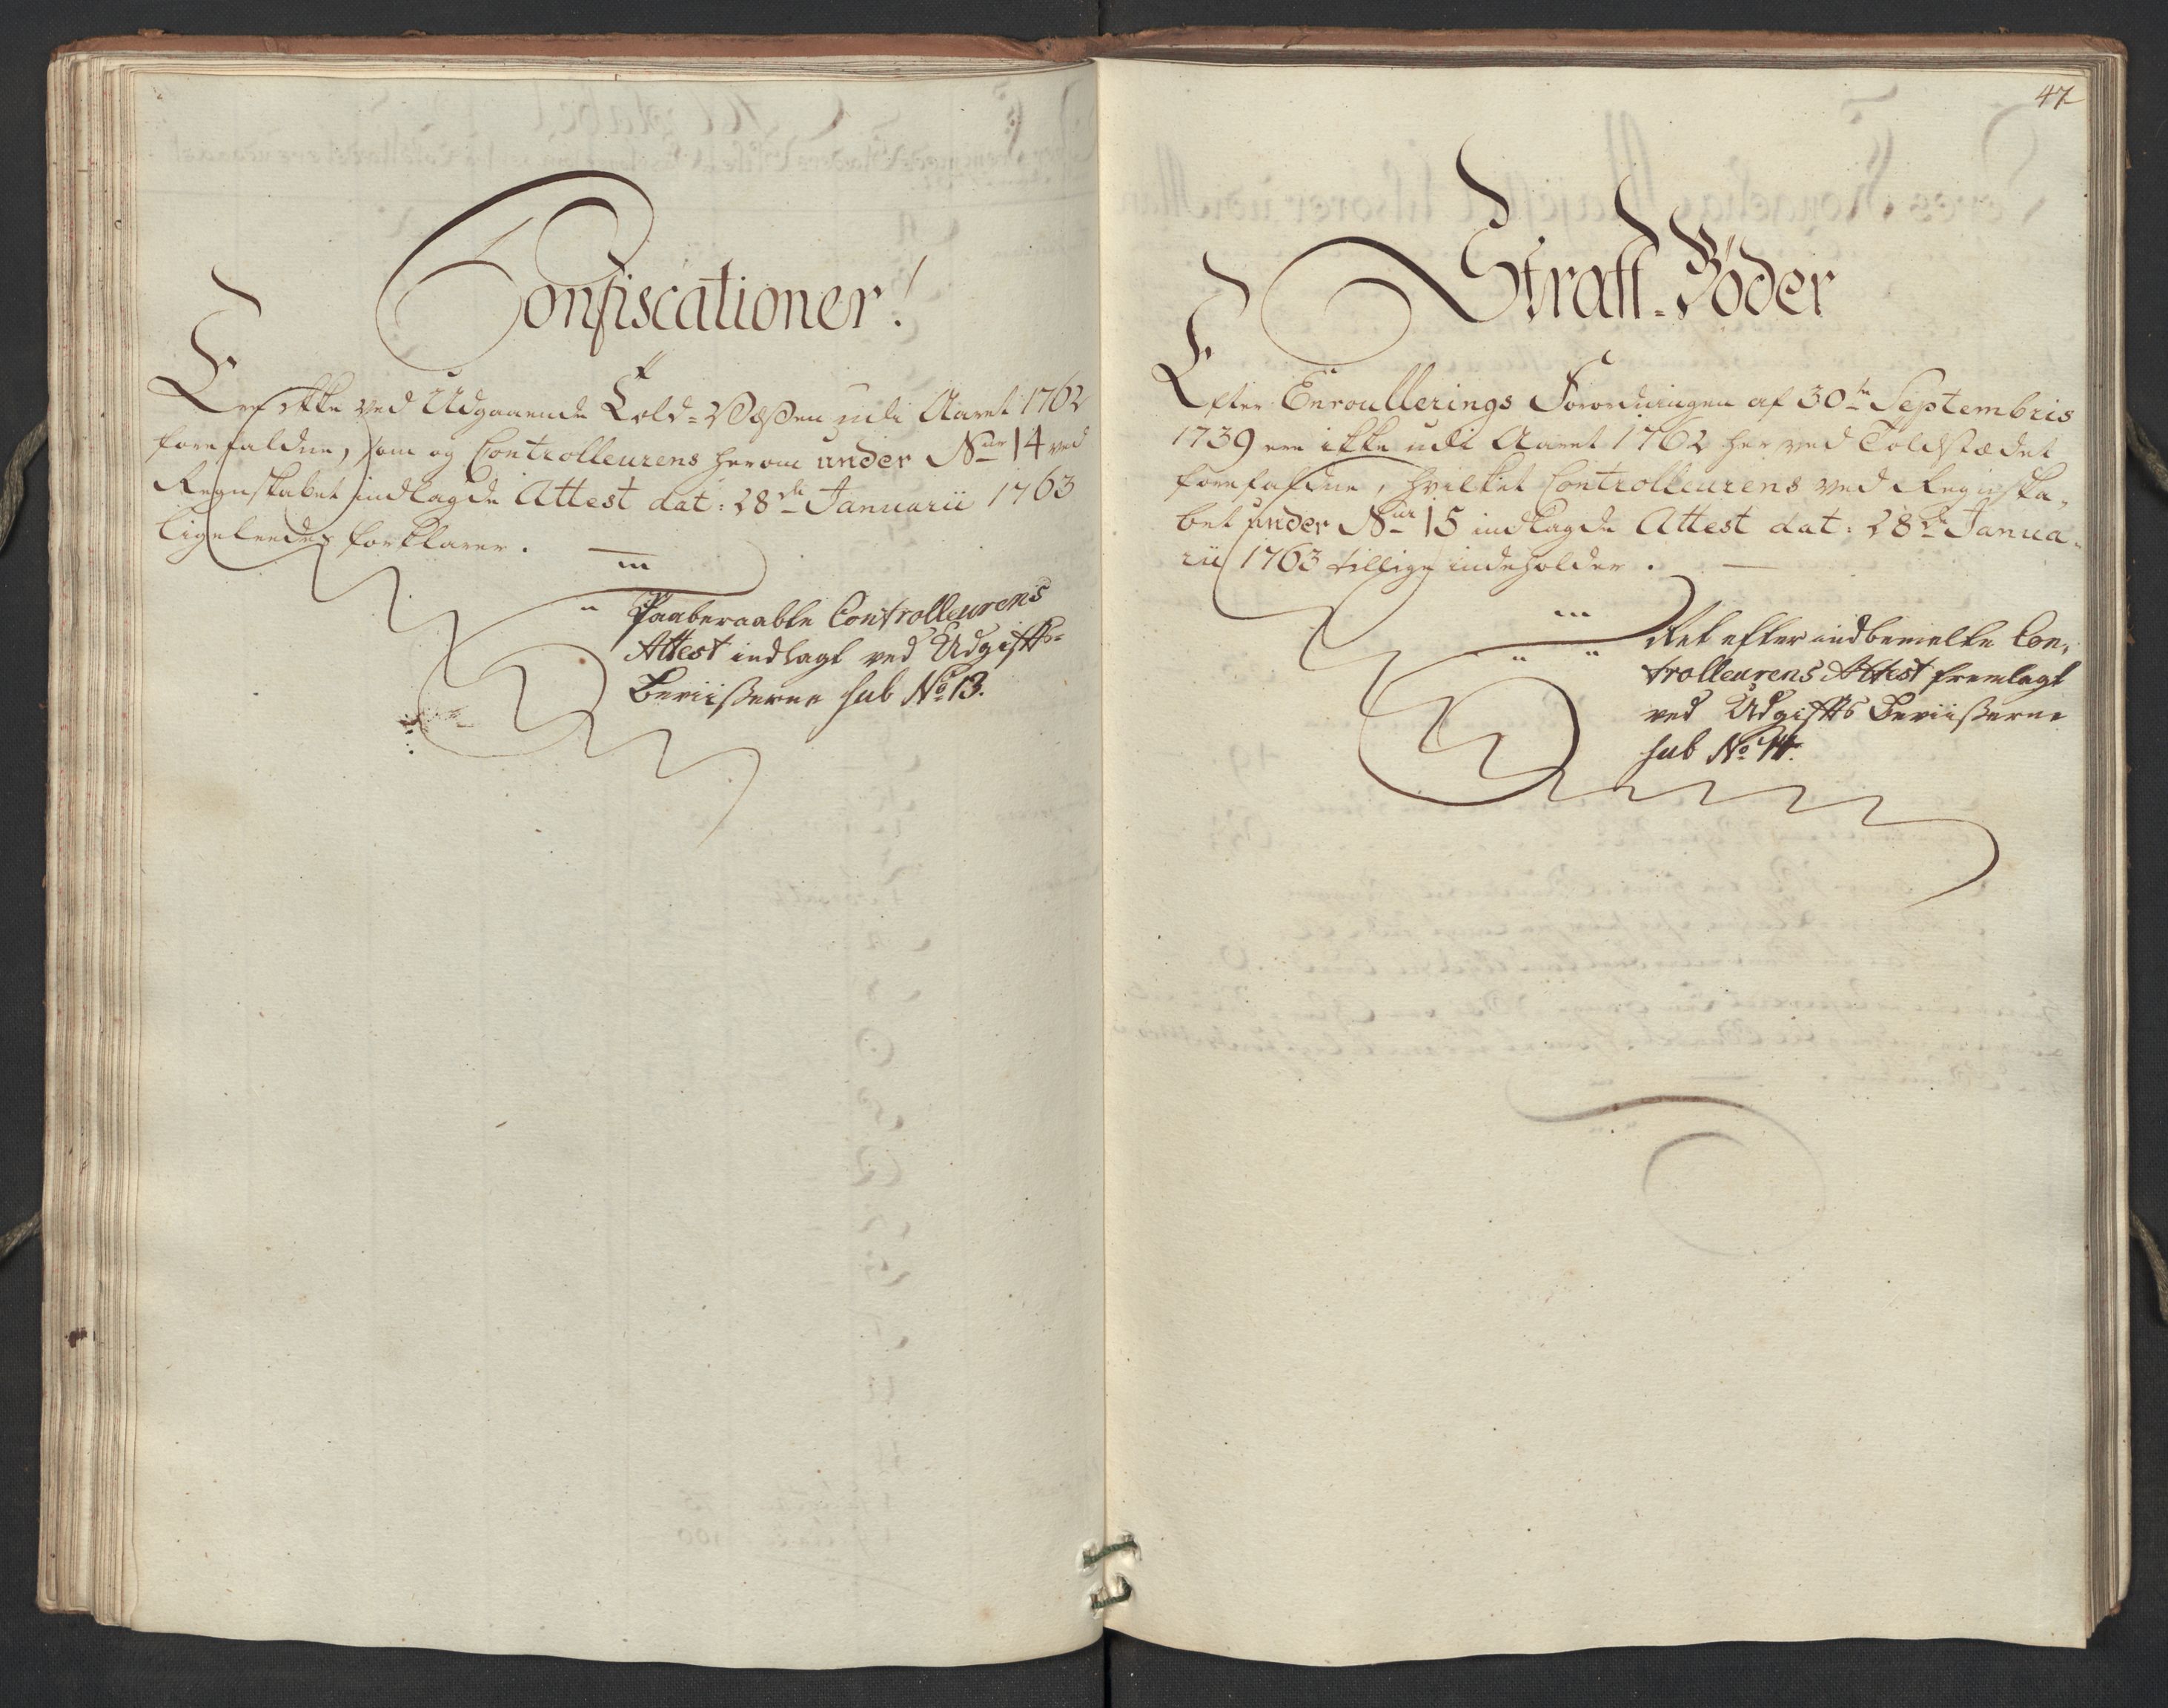 Confiscationer!
Er ikke ved Udgaaende Told-Væßen udi Aaret 1762
forefaldne, som og Controlleurens herom under Nur 14 ved
Regnskabet indlagde Attest dat: 28de Januarii 1763
ligeleedes forklarer.
Paaberaabte Controlleurens
Attest indlagt ved Udgiffts-
Beviißerne sub No 13.
47
Straff-Bøder
Efter Enroullerings Forordningen af 30te Septembris
1739 ere ikke udi Aaret 1762 her ved Toldstædet
forefaldne, hvilket Controlleurens ved Regnska-
bet under Nur 15 indlagde Attest dat: 28de Janua-
rii 1763 tillige indeholder.
Ret efter indbemelte Con-
trolleurens Attest fremlagt
ved Udgiffts Beviißerne
sub No 14.